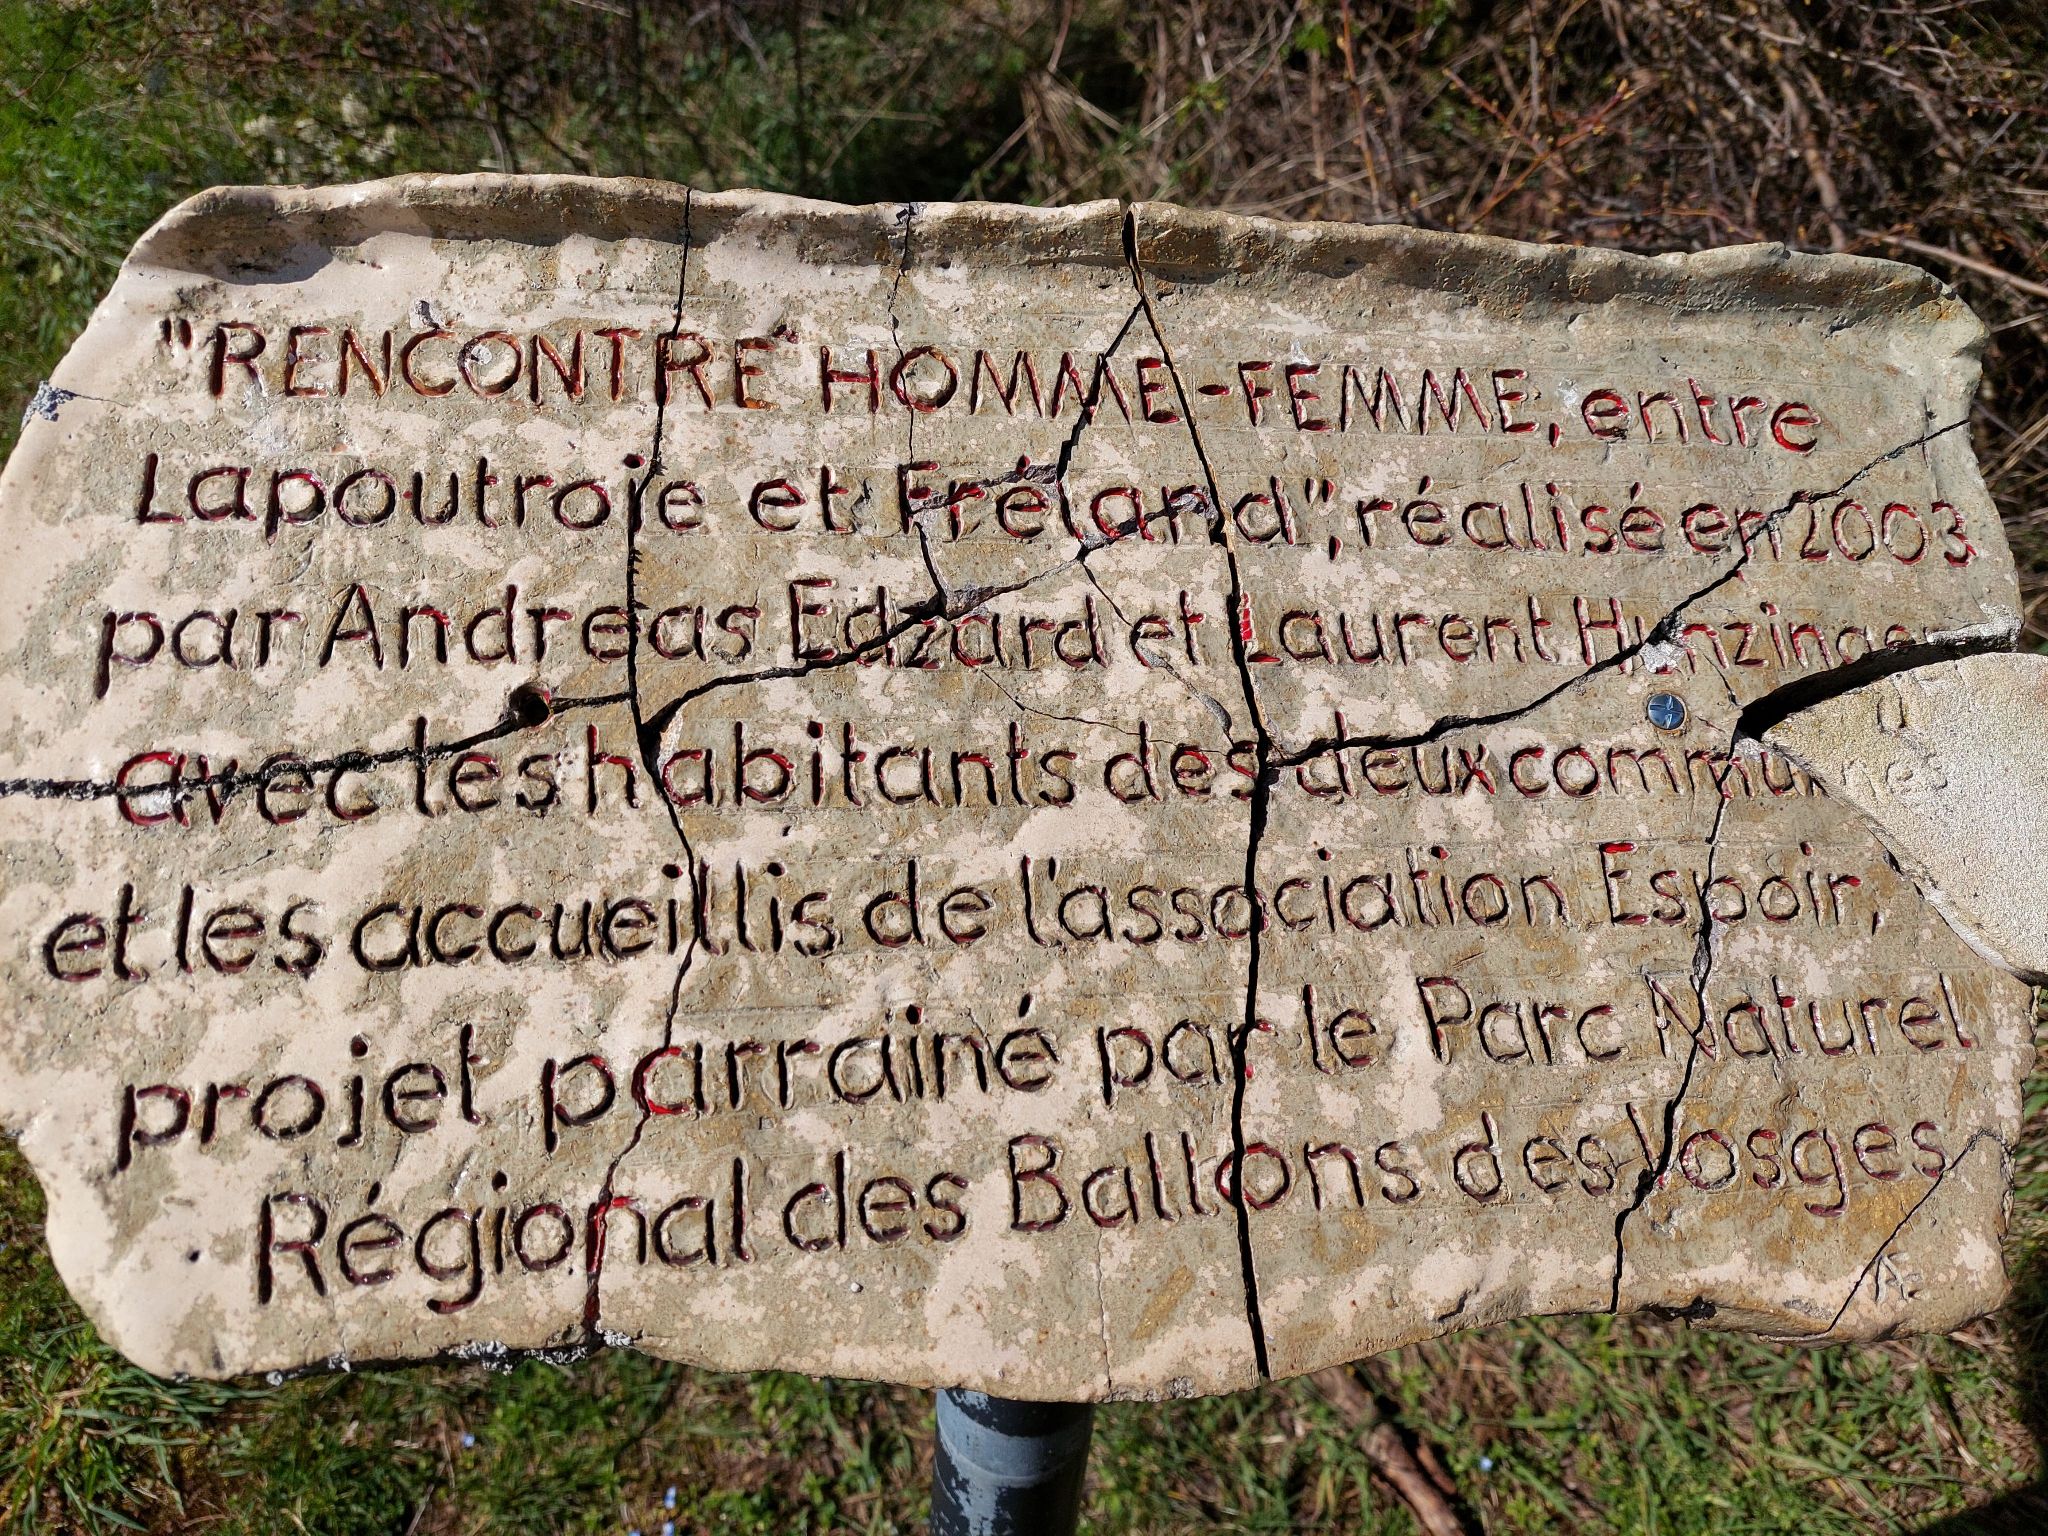 "RENCONTRE HOMME-FEMME, entre
Lapoutroie et Fréland", réalisé en 2003
par Andreas Edzard et Laurent Hunzinger
avec les habitants des deux
et les accueillis de l'association Espoir,
projet parrainé par le Parc Naturel
Régional des Ballons des Vosges